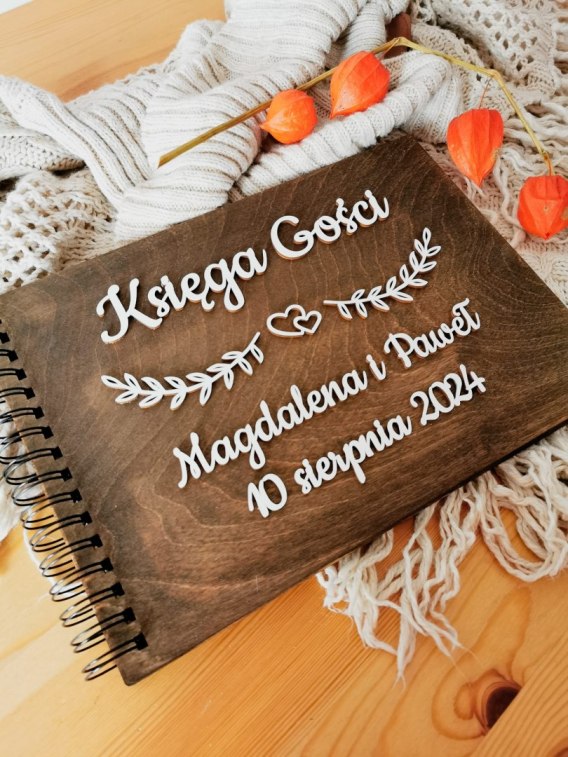 Księga Gości
Magdalena i Paweł
10 sierpnia 2024